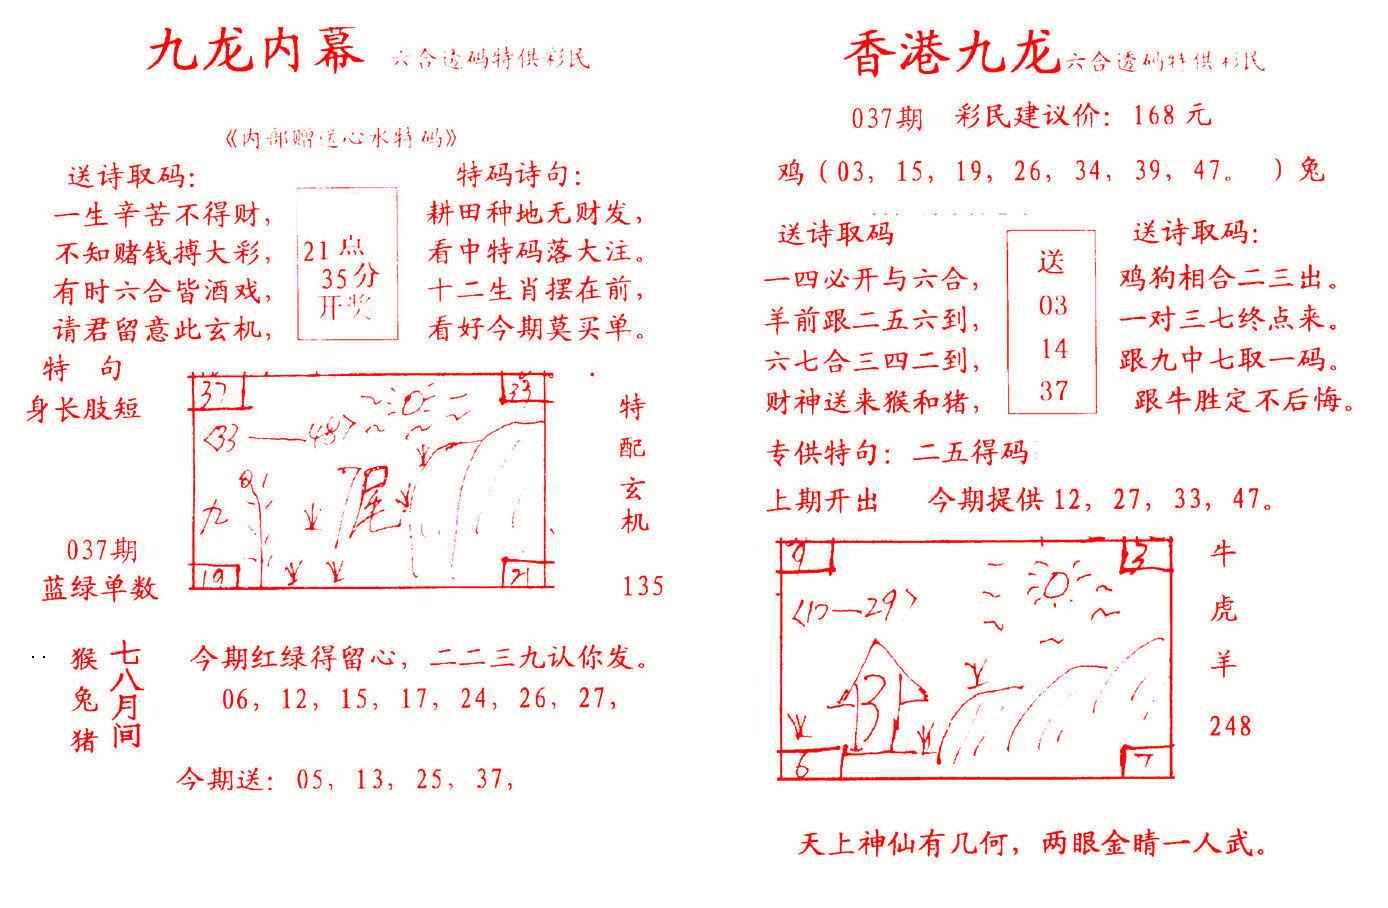 九龙内幕 六合透码特供彩民
《内部赠送心水特码》
送诗取码：
一生辛苦不得财，
不知赌钱搏大彩，
有时六合皆酒戏，
请君留意此玄机，
21点
35分
开奖
特码诗句：
耕田种地无财发，
看中特码落大注。
十二生肖摆在前，
看好今期莫买单。
特 句
身长肢短
037期
蓝绿单数
37
33
〈33——48〉
九
7尾
19
21
特配玄机
135
猴兔猪
七八月间
今期红绿得留心，二二三九认你发。
06，12，15，17，24，26，27，
今期送：05，13，25，37，
香港九龙 六合透码特供彩民
037期 彩民建议价：168元
鸡（03，15，19，26，34，39，47。 ）兔
送诗取码
一四必开与六合，
羊前跟二五六到，
六七合三四二到，
财神送来猴和猪，
送
03
14
37
送诗取码：
鸡狗相合二三出。
一对三七终点来。
跟九中七取一码。
跟牛胜定不后悔。
专供特句：二五得码
上期开出 今期提供12，27，33，47。
9
3
〈10—29〉
6
7
牛
虎
羊
248
天上神仙有几何，两眼金睛一人武。